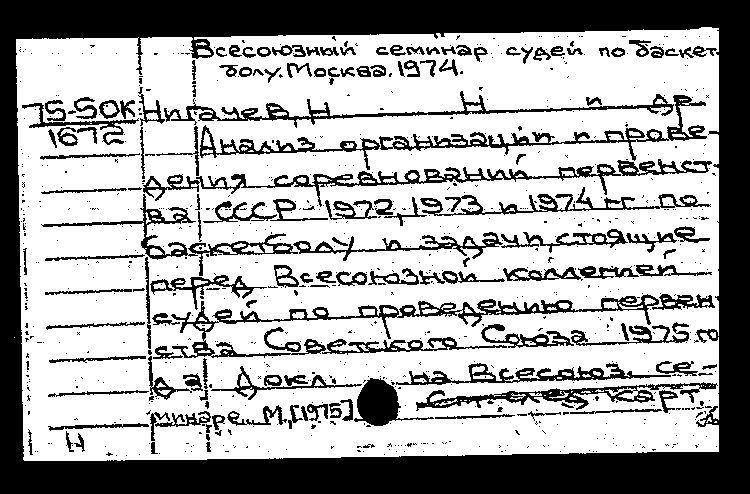 Всесоюзный семинар судей по баскет-
болу. Москва. 1974.
75-50К Нигачев, Н Н и др
1672 Анализ организации и прове-
дения соревнований первенст-
ва СССР 1972, 1973 и 1974 гг по
баскетболу и задачи, стоящие
перед Всесоюзной коллегией
судей по проведению первен-
ства Советского Союза 1975 го
да. Докл. на Всесоюз. се-
минаре. М, [1975] См. след. карт.
Н